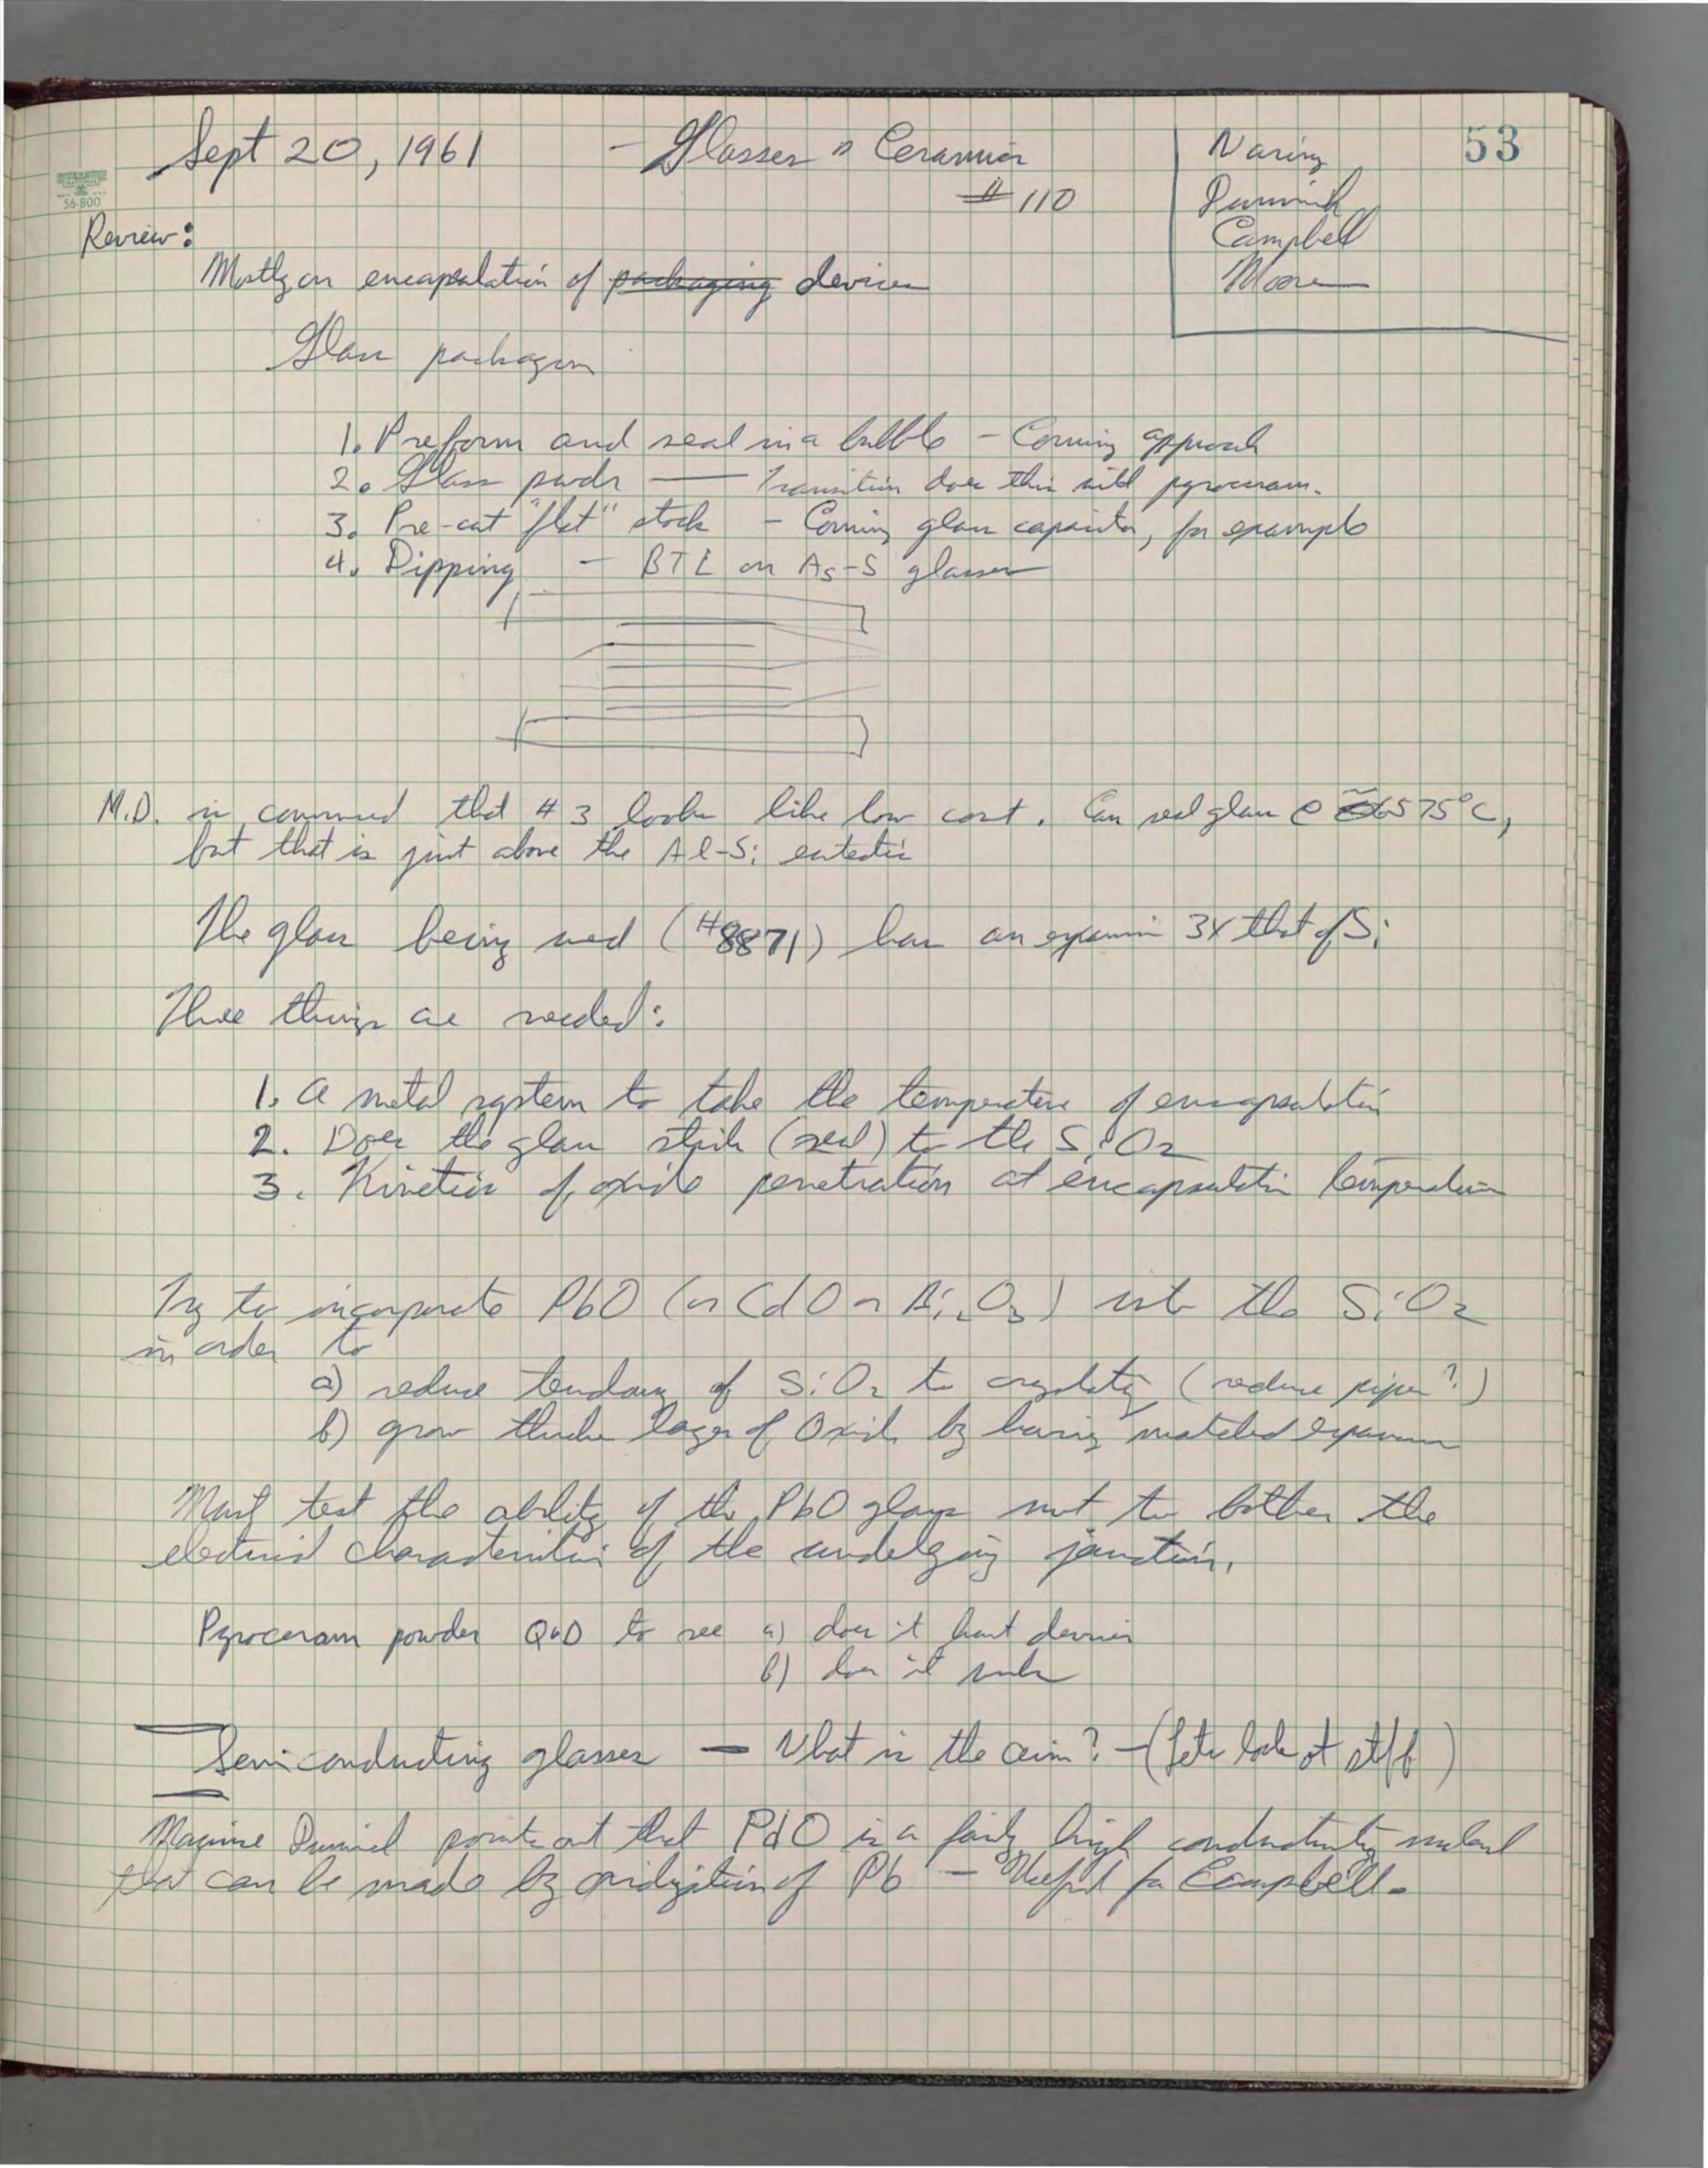 53
Sept 20, 1961 - Glasses & Ceramics
#110
Waring
Campbell
Moore
NATIONAL
56-800
Review:
Mostly on encapsulation of packaging devices
Glass packages
1. Preform and seal in a bubble - Corning approach
2. Glass powdr — Transitron does this with pyroceram.
3. Pre-cut "flat" stock - Corning glass capacitor, for example
4. Dipping - BTL on As-S glasses
M.D. is convinced that #3 looks like low cost. Can seal glass @ ≅ 575°C,
but that is just above the Al-Si eutectic
The glass being used (#8871) has an expansion 3X that of Si
Three things are needed:
1. A metal system to take the temperature of encapsulation
2. Does the glass stick (seal) to the SiO2
3. Kinetics of oxide penetration at encapsulation temperature
Try to incorporate PbO (or CdO or Bi2O3) into the SiO2
in order to
a) reduce tendency of SiO2 to crystallize (reduce pipes?)
b) grow thicker layer of Oxide by having matched expansion
Must test the ability of the PbO glass not to bother the
electrical characteristics of the underlying junction.
Pyroceram powder Q&D to see a) does it hurt devices
b) does it
Semiconducting glasses — What is the aim? - (Lets look at stuff)
Maurine points out that PdO is a fairly high conductivity material
that can be made by oxidization of Pb - Useful for Campbell.